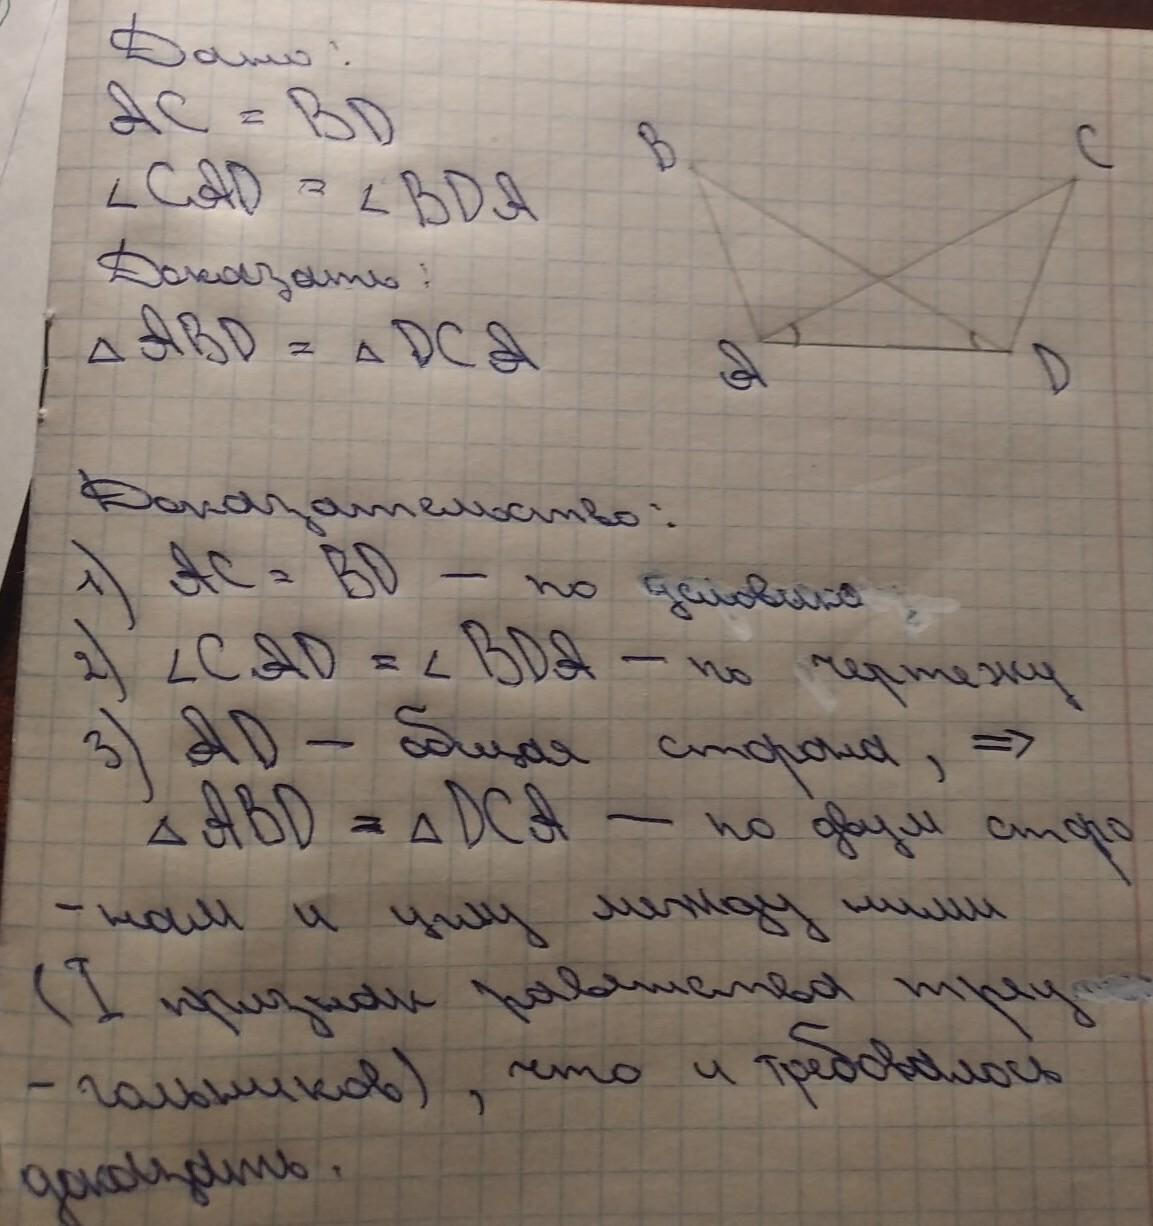 Дано:
AC = BD
∠CAD = ∠BDA
Доказать:
△ABD = △DCA
B
C
A
D
Доказательство:
1) AC = BD — по условию;
2) ∠CAD = ∠BDA — по чертежу
3) AD — общая сторона, ⇒
△ABD = △DCA — по двум сторо
-нам и углу между ними
(I признак равенства треу-
-гольников), что и требовалось
доказать.